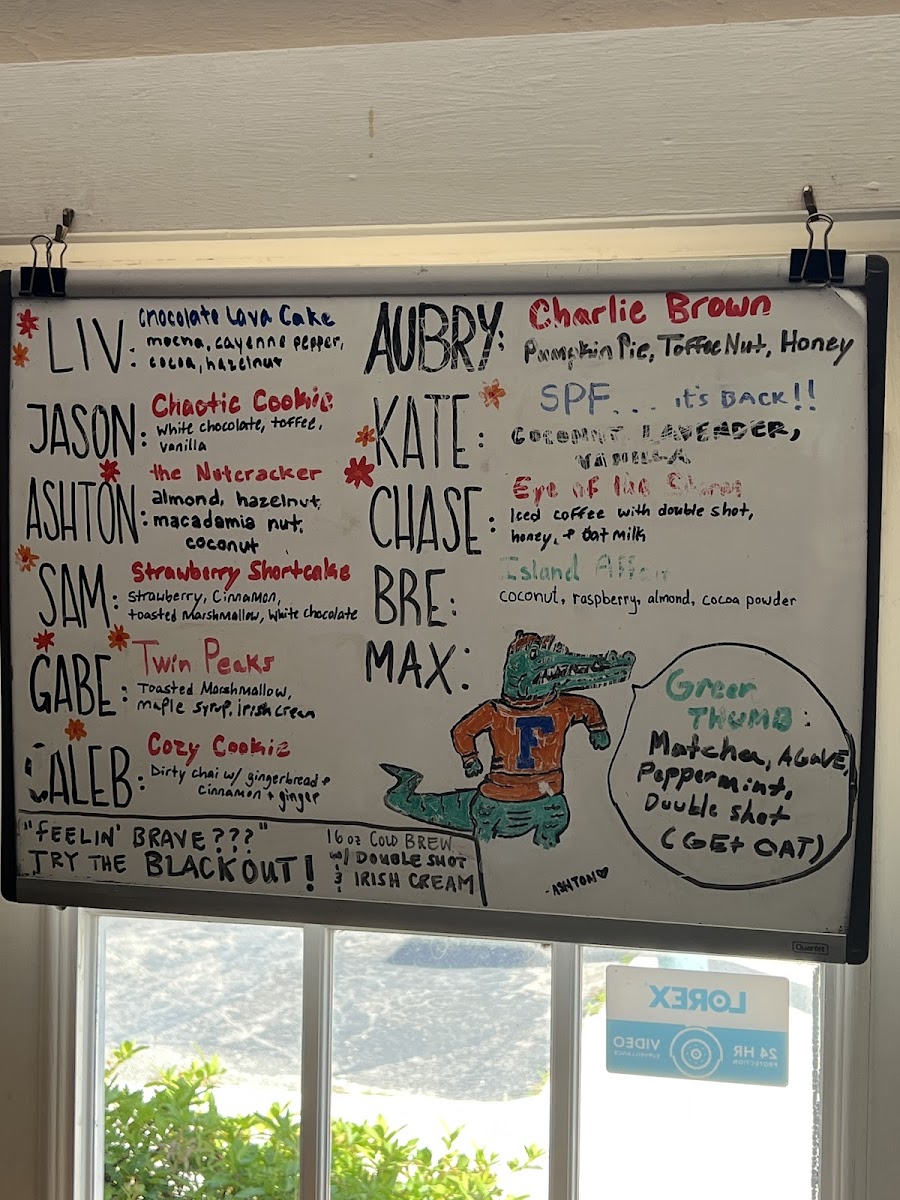 LIV: Chocolate Lava Cake
mocha, cayenne pepper,
cocoa, hazelnut
JASON: Chaotic Cookie
white chocolate, toffee,
vanilla
ASHTON: the Nutcracker
almond, hazelnut,
macadamia nut,
coconut
SAM: Strawberry Shortcake
Strawberry, Cinnamon,
toasted Marshmallow, White chocolate
GABE: Twin Peaks
Toasted Marshmallow,
maple syrup, irish cream
CALEB: Cozy Cookie
Dirty chai w/ gingerbread +
cinnamon + ginger
"FEELIN' BRAVE???"
TRY THE BLACKOUT!
16oz COLD BREW
w/ DOUBLE SHOT
& IRISH CREAM
AUBRY: Charlie Brown
Pumpkin Pie, Toffee Nut, Honey
KATE: SPF... it's BACK!!
COCONUT, LAVENDER,
VANILLA
CHASE: Eye of the Storm
Iced coffee with double shot,
honey, + oat milk
BRE: Island Affair
coconut, raspberry, almond, cocoa powder
MAX:
F
Green
THUMB:
Matcha, AGAVE,
Peppermint,
Double shot
(GET OAT)
-ASHTON♡
Quartet
LOREX
24 HR VIDEO
PROTECTION SURVEILLANCE